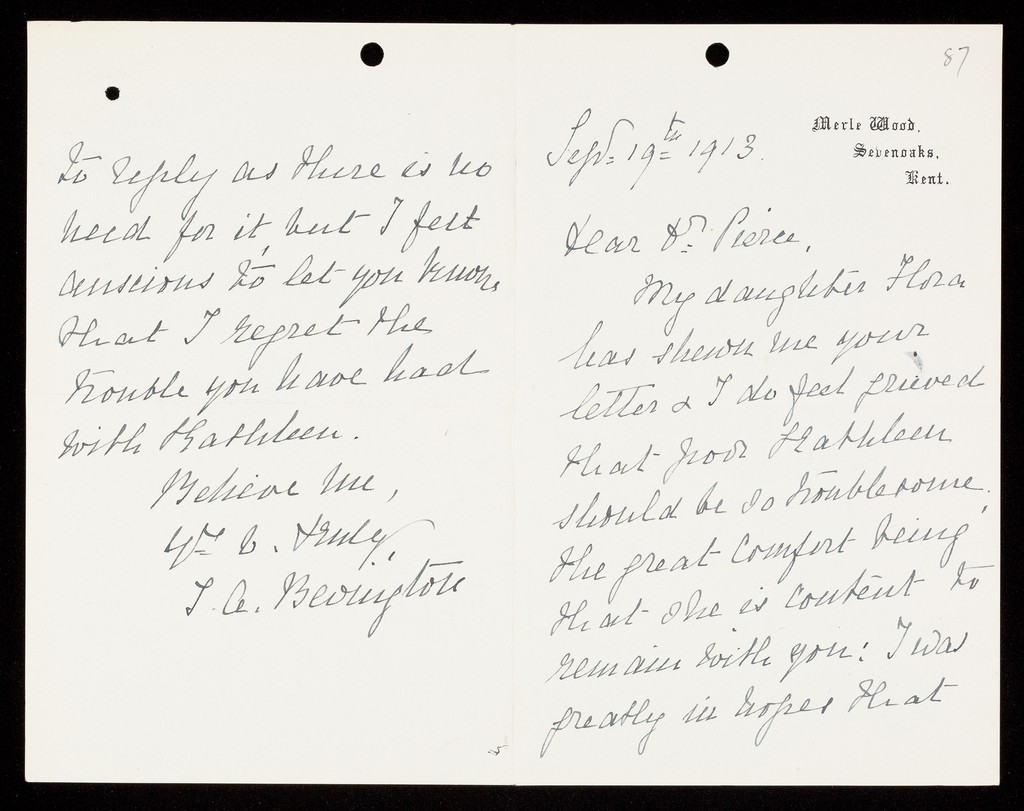 87
Merle Wood,
Sevenoaks,
Kent.
Sept= 19th= 1913.
Dear Dr. Pierce,
My daughter Flora
has shewn me your
letter & I do feel grieved
that poor Kathleen
should be so troublesome,
the great comfort being
that she is content to
remain with you: I was
greatly in hopes that
to reply as there is no
need for it, but I felt
anscious to let you know,
that I regret the
trouble you have had
with Kathleen.
Believe me,
Yrs v. truly,
A. Bevington